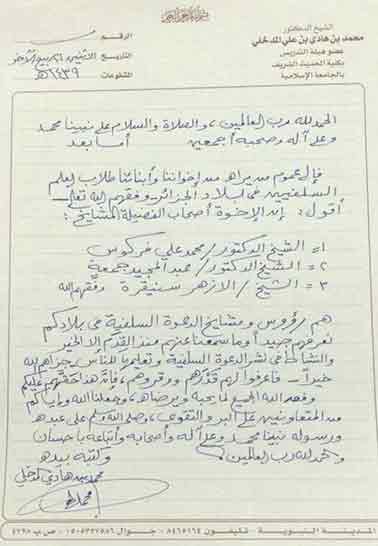 بسم الله الرحمن الرحيم
الشيخ الدكتور
محمد بن هادي بن علي المدخلي
عضو هيئة التدريس
بكلية الحديث الشريف
بالجامعة الإسلامية
الرقم
التاريخ الاثنين ربيع الآخر
١٤٣٩هـ
الحمد لله رب العالمين، والصلاة والسلام على نبينا محمد
وعلى آله وصحبه أجمعين أما بعد
فإلى عموم من يراه من إخواننا وأبنائنا طلاب العلم
السلفيين في بلاد الجزائر وفقهم الله تعالى
أقول: إن الإخوة أصحاب الفضيلة المشايخ:
١= الشيخ الدكتور/ محمد علي فركوس
٢= الشيخ الدكتور/ عبد المجيد جمعة
٣= الشيخ/ الأزهر سنيقرة وفقهم الله
هم رؤوس ومشايخ الدعوة السلفية في بلادكم
نعرفهم جيداً وما سمعنا عنهم منذ القدم إلا الخير
والنشاط في نشر الدعوة السلفية وتعليمها للناس جزاهم الله
خيراً= فاعرفوا لهم قدرهم ووقروهم، فإن هذا حقهم عليكم
وفق الله الجميع لما يحبه ويرضاه، وجعلنا الله وإياكم
من المتعاونين على البر والتقوى، وصلى الله وسلم على عبده
ورسوله نبينا محمد وعلى آله وأصحابه وأتباعه بإحسان
والحمد لله رب العالمين.
وكتبه بيده
محمد بن هادي المدخلي
المدينة النبوية - تليفون ٨٤٦٥١٦٤ - جوال ١٥٠٥٣٣٧٥٨٦ - ص.ب ٤٢٩٨